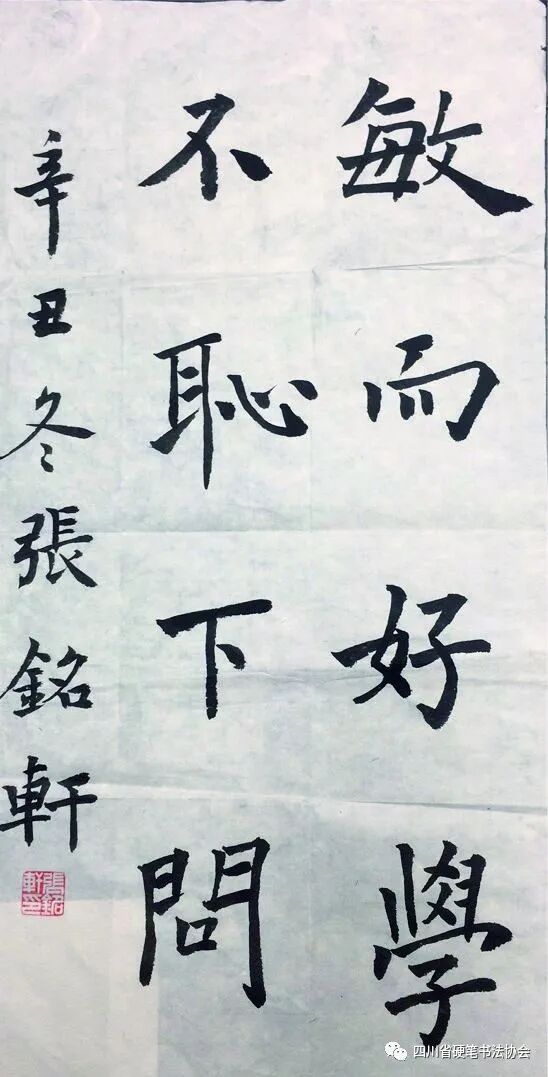 敏而好學
不恥下問
辛丑冬張銘軒
張銘軒印
四川省硬笔书法协会